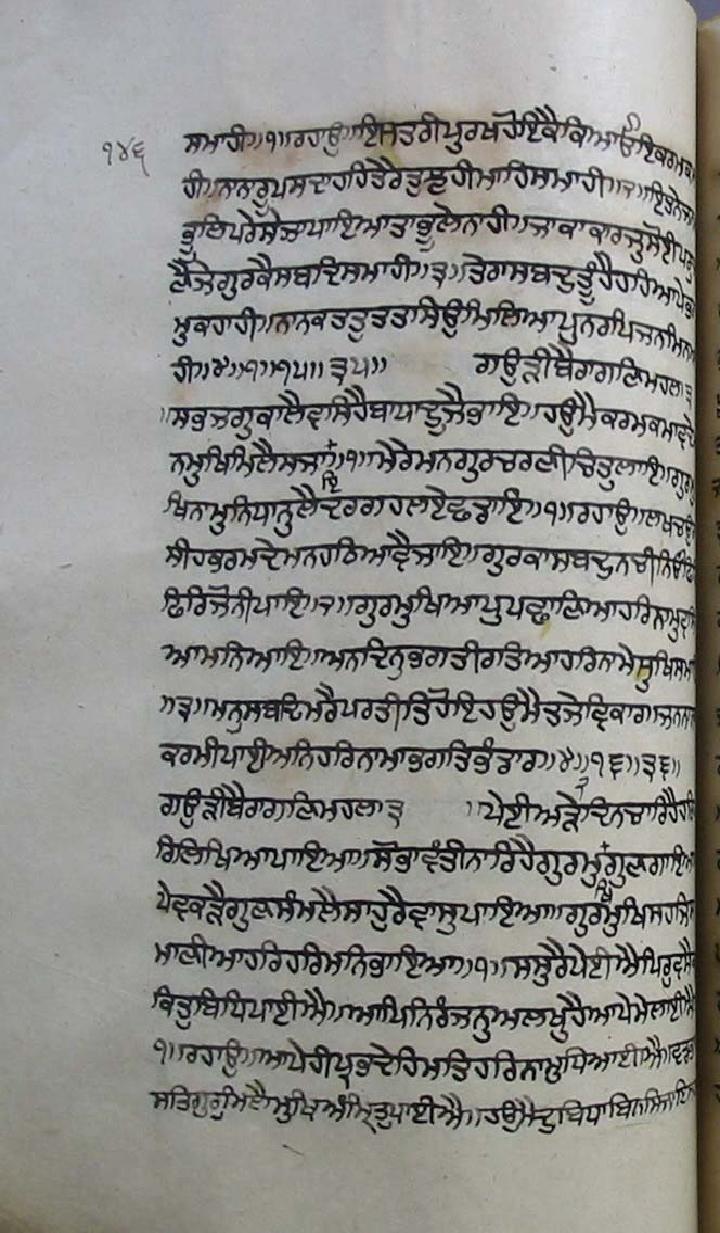 ੧੪੬
ਸਮਾਹੀ॥੧॥ਰਹਾਉ॥ਇਸਤਰੀਪੁਰਖਹੋਇਕੈਕਿਆਓਇਕਰਮਕਮਾ
ਹੀ॥ਨਾਨਾਰੂਪਸਦਾਹਹਿਤੇਰੇਤੁਝਹੀਮਾਹਿਸਮਾਹੀ॥੨॥ਇਤਨੇਜਨਮ
ਭੂਲਿਪਰੇਸੇਜਾਪਾਇਆਤਾਭੂਲੇਨਾਹੀ॥ਜਾਕਾਕਾਰਜੁਸੋਈਪਰੁ
ਜਾਣੈਜੇਗੁਰਕੈਸਬਦਿਸਮਾਹੀ॥੩॥ਤੇਰਾਸਬਦੁਤੂੰਹੈਹਹਿਆਪੇਭਰ
ਮੁਕਹਾਹੀ॥ਨਾਨਕਤਤੁਤਤਸਿਉਮਿਲਿਆਪੁਨਰਪਿਜਨਮਿਨਆ
ਹੀ॥੪॥੧॥੧੫॥੩੫॥ ਗਉੜੀਬੈਰਾਗਣਿਮਹਲਾ੩
॥ਸਭੁਜਗੁਕਾਲੈਵਸਿਹੈਬਾਧਾਦੂਜੈਭਾਇ॥ਹਉਮੈਕਰਮਕਮਾਵਦੇ
ਨਮੁਖਿਮਿਲੈਸਜਾਇ॥੧॥ਮੇਰੇਮਨਗੁਰਚਰਣੀਚਿਤੁਲਾਇ॥ਗੁਰਮੁ
ਖਿਨਾਮੁਨਿਧਾਨੁਲੈਦਰਗਹਲਏਛਡਾਇ॥੧॥ਰਹਾਉ॥ਲਖਚਉ
ਸੀਹਭਰਮਦੇਮਨਹਠਿਆਵੈਜਾਇ॥ਗੁਰਕਾਸਬਦੁਨਚੀਨਿਓਫਿ
ਫਿਰਿਜੋਨੀਪਾਇ॥੨॥ਗੁਰਮੁਖਿਆਪੁਪਛਾਣਿਆਹਰਿਨਾਮੁਵਸਿ
ਆਮਨਿਆਇ॥ਅਨਦਿਨੁਭਗਤੀਰਤਿਆਹਰਿਨਾਮੇਸੁਖਿਸਮਾ
॥੩॥ਮਨੁਸਬਦਿਮਰੈਪਰਤੀਤਿਹੋਇਹਉਮੈਤਜੇਵਿਕਾਰ॥ਜਨਨਾਨ
ਕਰਮੀਪਾਈਅਨਿਹਰਿਨਾਮਾਭਗਤਿਭੰਡਾਰ॥੪॥੨॥੧੬॥੩੬॥
ਗਉੜੀਬੈਰਾਗਣਿਮਹਲਾ੩ ॥ਪੇਈਅੜੈਦਿਨਚਾਰਿਹੈਹਰਿ
ਰਿਲਿਖਿਆਪਾਇਆ॥ਸੋਭਾਵੰਤੀਨਾਰਿਹੈਗੁਰਮੁਖਿਗੁਣਗਾਇਆ
ਪੇਵਕੜੈਗੁਣਸੰਮਲੈਸਾਹੁਰੈਵਾਸੁਪਾਇਆ॥ਗੁਰਮੁਖਿਸਹਜਿ
ਮਾਣੀਆਹਰਿਹਰਿਮਨਿਭਾਇਆ॥੧॥ਸਸੁਰੈਪੇਈਐਪਿਰੁਵਸੈ
ਕਿਤੁਬਿਧਿਪਾਈਐ॥ਆਪਿਨਿਰੰਜਨੁਅਲਖੁਹੈਆਪੇਮੇਲਾਈਐ
੧॥ਰਹਾਉ॥ਆਪੇਹੀਪ੍ਰਭਦੇਹਿਮਤਿਹਰਿਨਾਮੁਧਿਆਈਐ॥ਵਡਭਾ
ਸਤਿਗੁਰੁਮਿਲੈਮੁਖਿਅੰਮ੍ਰਿਤੁਪਾਈਐ॥ਹਉਮੈਦੁਬਿਧਾਬਿਨਸਿਜਾਇ